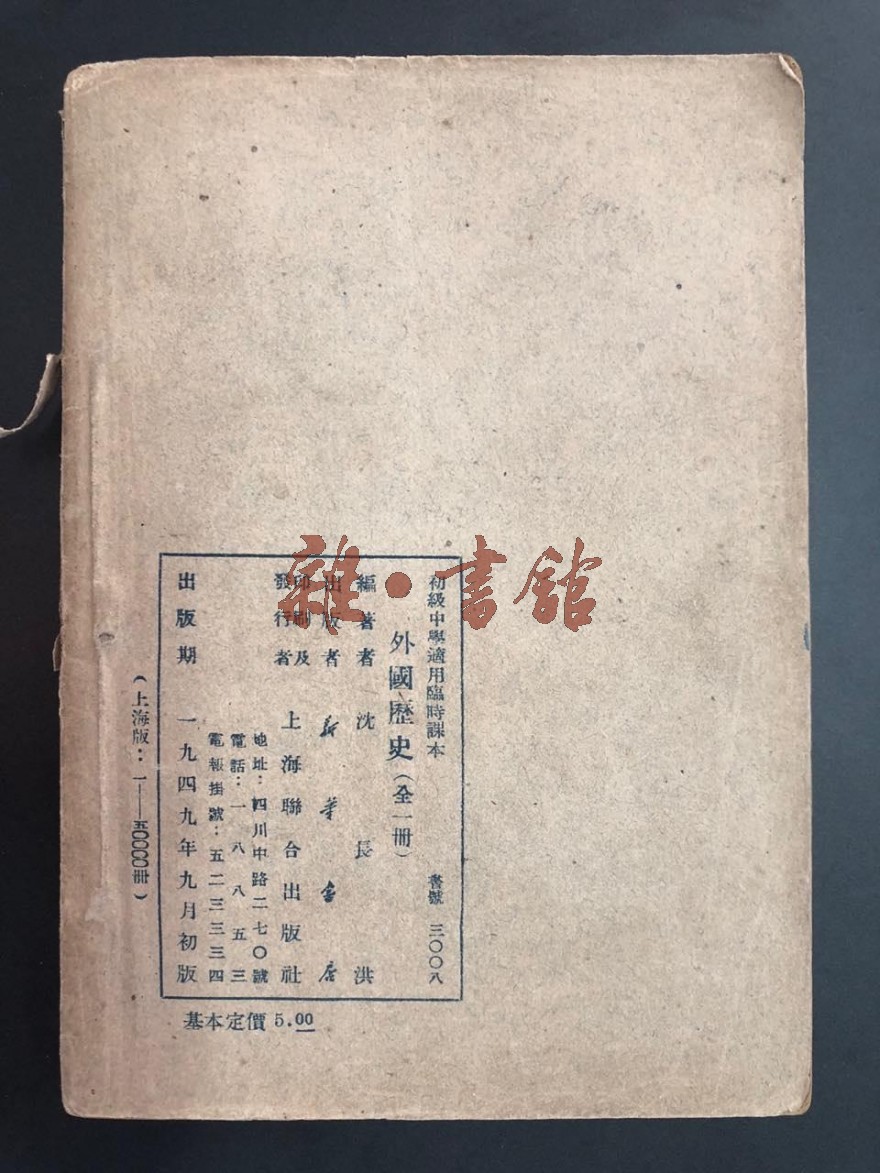 初級中學適用臨時課本 書號 三〇〇八
外國歷史（全一冊）
編著者 沈長洪
出版者 新華書店
印刷及
發行者 上海聯合出版社
地址：四川中路二七〇號
電話：一八八五三
電報掛號：五二三三三四
出版期 一九四九年九月初版
（上海版：一——五〇〇〇〇冊）
基本定價 5.00
雜·書館